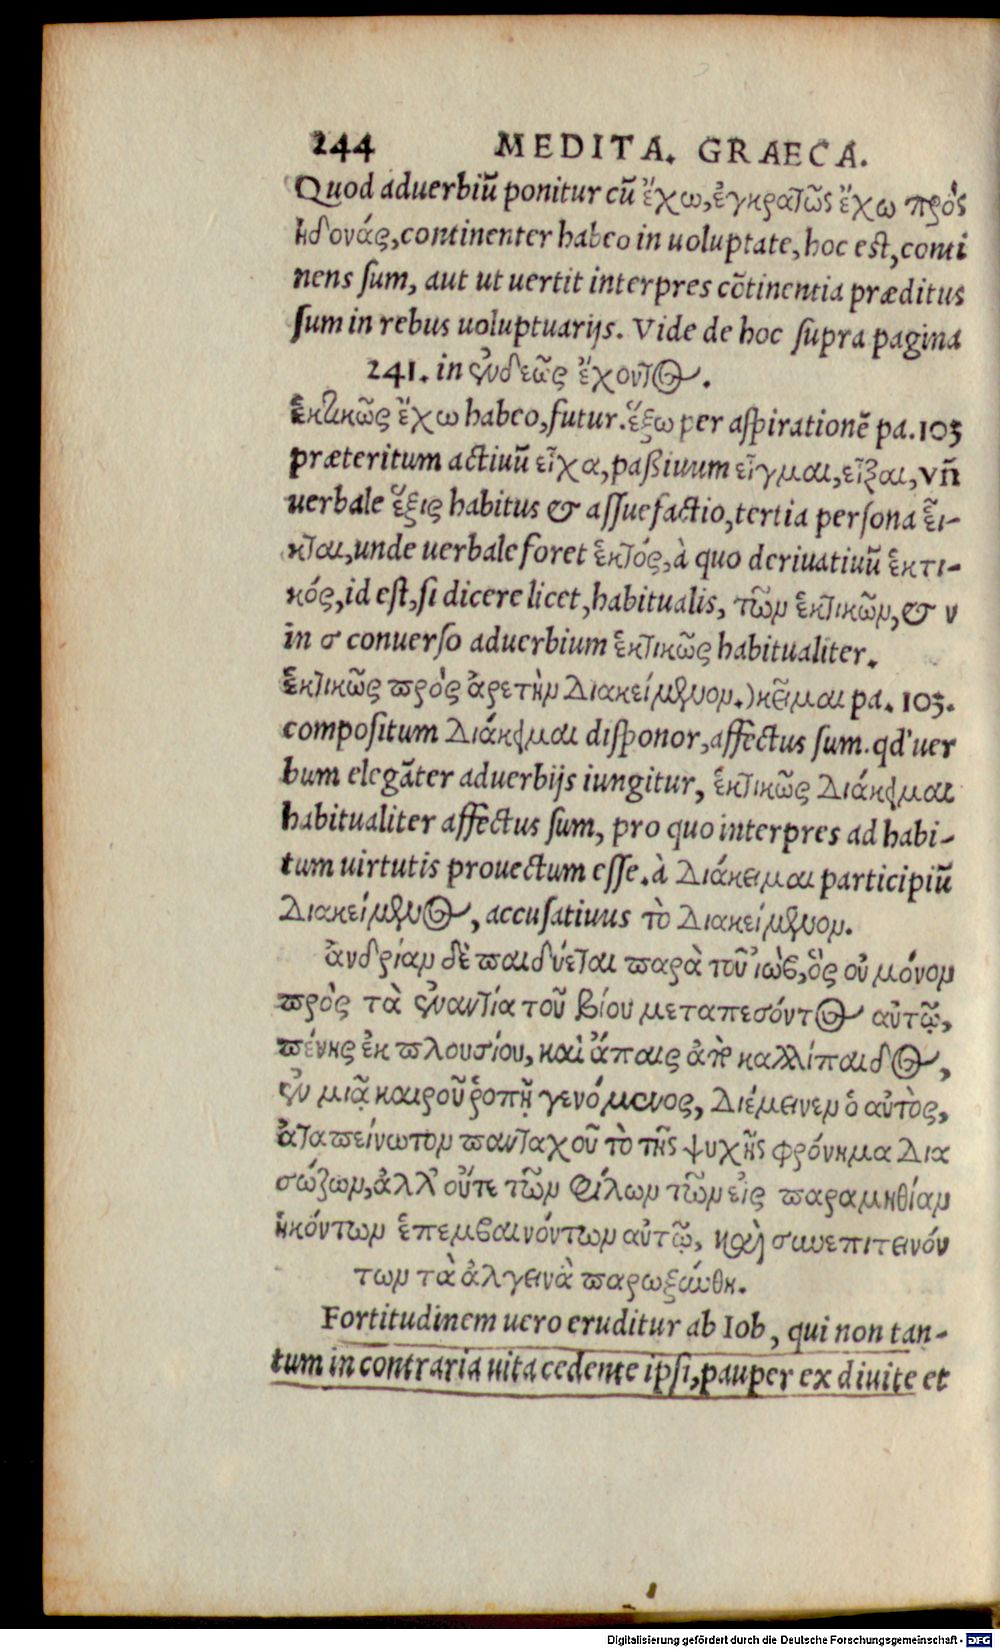 244 MEDITA. GRAECA.
Quod aduerbiū ponitur cū ἔχω, ἐγκρατῶς ἔχω πρὸς
ἡδονάς, continenter habeo in uoluptate, hoc est, conti
nens sum, aut ut uertit interpres cōtinentia præditus
sum in rebus uoluptuarijs. Vide de hoc supra pagina
241. in ἐνδεῶς ἔχοντος.
ἑκτικῶς ἔχω habeo, futur. ἕξω per aspirationē pa. 103
præteritum actiuū εἶχα, paßiuum εἶγμαι, εἶξαι, vñ
uerbale ἕξις habitus & assuefactio, tertia persona εἶ-
κται, unde uerbale foret ἑκτός, à quo deriuatiuū ἑκτι-
κός, id est, si dicere licet, habitualis, τῶν ἑκτικῶν, & ν
in σ conuerso aduerbium ἑκτικῶς habitualiter.
ἑκτικῶς πρὸς ἀρετὴν διακείμενον.) κεῖμαι pa. 103.
compositum διάκειμαι disponor, affectus sum. qd' uer
bum elegāter aduerbijs iungitur, ἑκτικῶς διάκειμαι
habitualiter affectus sum, pro quo interpres ad habi-
tum uirtutis prouectum esse. à διάκειμαι participiū
διακείμενος, accusatiuus τὸ διακείμενον.
ἀνδρίαν δὲ παιδύεται παρὰ τοῦ ἰὼβ, ὃς οὐ μόνον
πρὸς τὰ ἐναντία τοῦ βίου μεταπεσόντος αὐτῷ,
πένης ἐκ πλουσίου, καὶ ἄπαις ἀπὸ καλλίπαιδος,
ἐν μιᾷ καιροῦ ῥοπῇ γενόμενος, διέμεινεν ὁ αὐτὸς,
ἀταπείνωτον πανταχοῦ τὸ τῆς ψυχῆς φρόνημα δια
σώζων, ἀλλ' οὔτε τῶν φίλων τῶν εἰς παραμηθίαν
ἡκόντων ἐπεμβαινόντων αὐτῷ, καὶ συνεπιτεινόν
των τὰ ἀλγεινὰ παρωξύνθη.
Fortitudinem uero eruditur ab Iob, qui non tan-
tum in contraria uita cedente ipsi, pauper ex diuite et
Digitalisierung gefördert durch die Deutsche Forschungsgemeinschaft - DFG